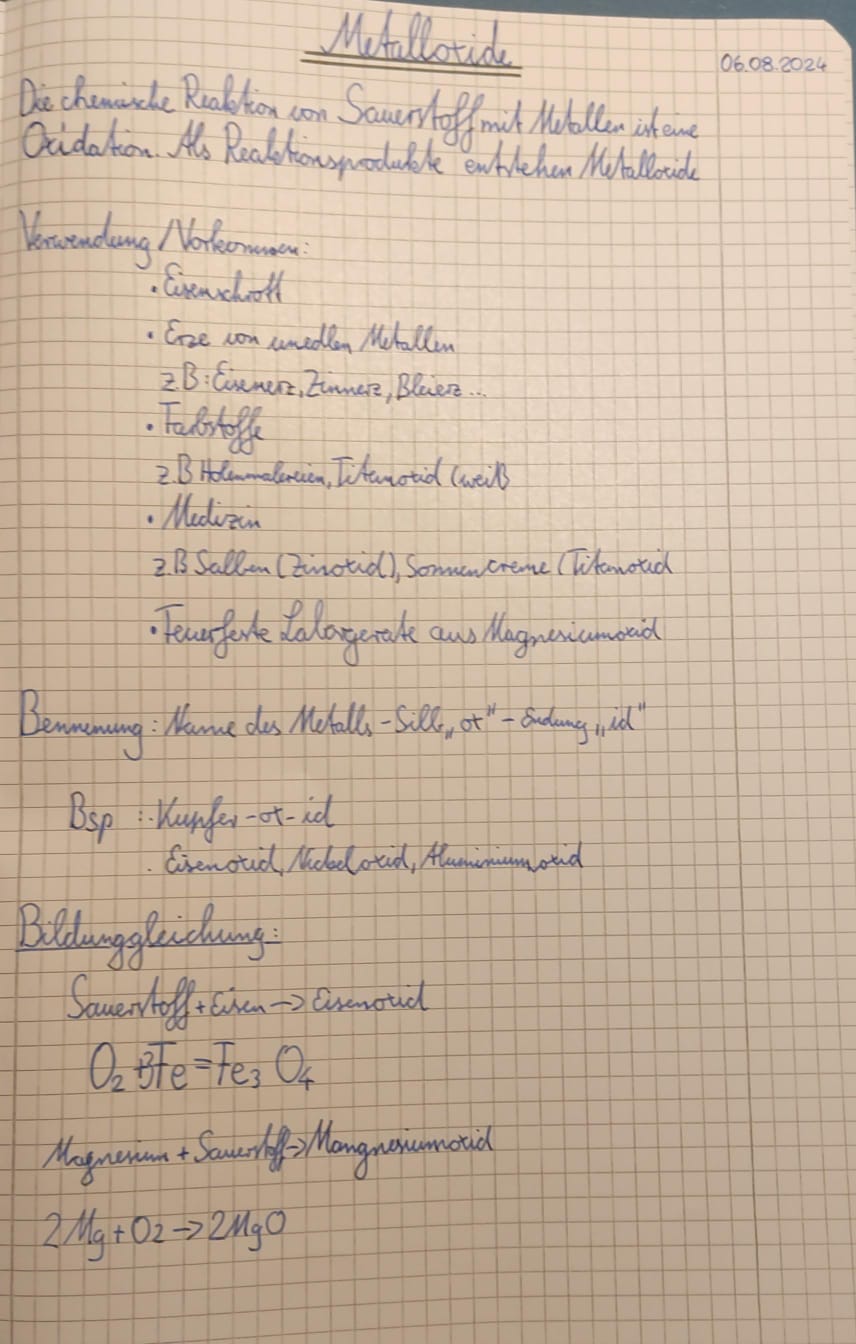 Metalloxide
06.08.2024
Die chemische Reaktion von Sauerstoff mit Metallen ist eine
Oxidation. Als Reaktionsprodukte entstehen Metalloxide
Verwendung/Vorkommen:
• Eisenschrott
• Erze von unedlen Metallen
z B: Eisenerz, Zinnerz, Bleierz...
• Farbstoffe
z.B Hölenmalereien, Titanoxid (weiß
• Medizin
z.B Salben (Zinoxid), Sonnencreme (Titanoxid
• Feuerfeste Laborgeräte aus Magnesiumoxid
Bennenung: Name des Metalls - Silb „ox" - Endung „id"
Bsp :· Kupfer-ox-id
· Eisenoxid, Nickeloxid, Aluminiumoxid
Bildunggleichung:
Sauerstoff + Eisen -> Eisenoxid
O2 + 3Fe = Fe3 O4
Magnesium + Sauerstoff -> Mangnesiumoxid
2Mg + O2 -> 2MgO